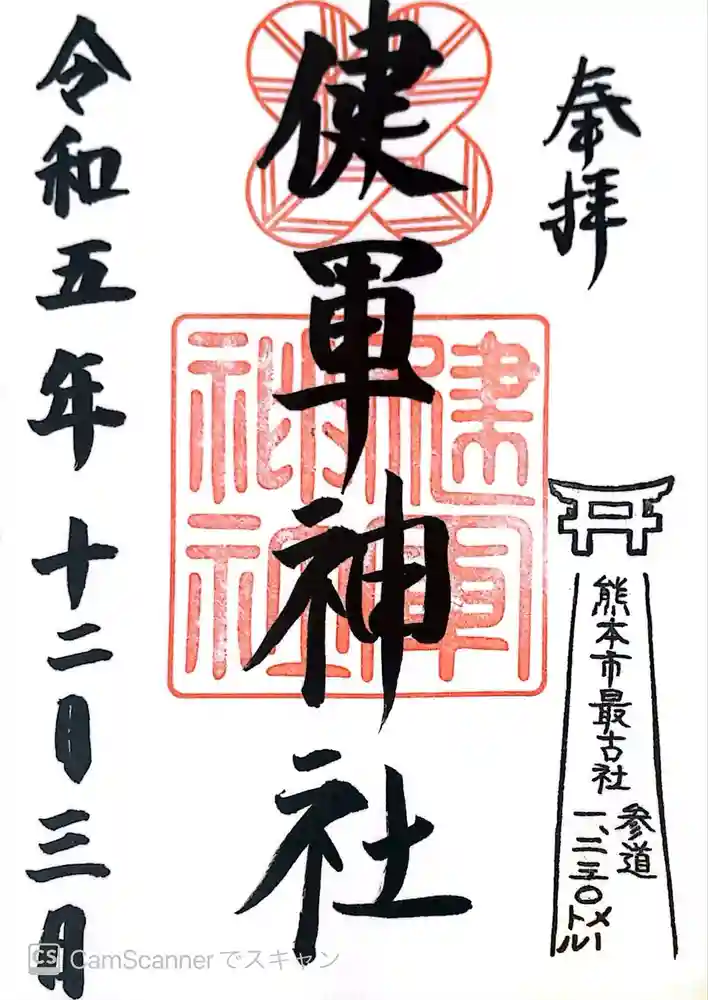 奉拝
健軍神社
健軍
神社
令和五年十二月三日
熊本市最古社
参道
一、二三〇メートル
CS CamScanner でスキャン